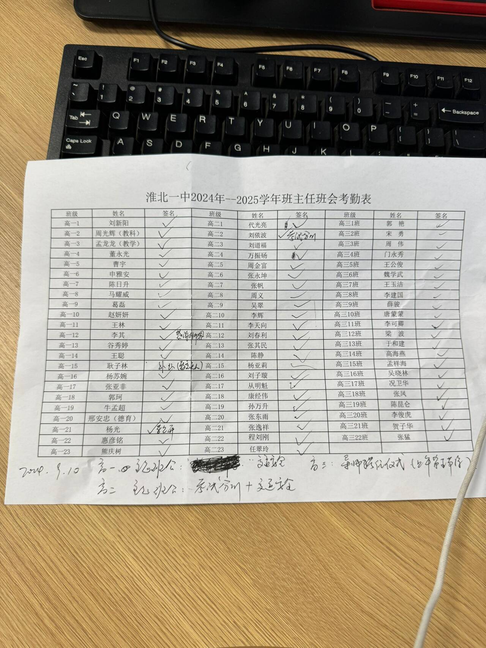 Esc F1 F2 F3 F4 F5 F6 F7 F8 F9 F10 F11 F12
Backspace
Tab Q W E R T Y U
Caps Lock A S D
淮北一中2024年—2025学年班主任班会考勤表
班级 姓名 签名 班级 姓名 签名 班级 姓名 签名
高一1 刘新阳 高二1 代光亮 高三1班 郭艳
高一2 周光辉（教科） 高二2 刘依波 高三2班 宋勇
高一3 孟龙龙（教学） 高二3 刘道福 高三3班 周伟
高一4 董永光 高二4 万振场 高三4班 门永秀
高一5 曹宇 高二5 周金宣 高三5班 王公俊
高一6 申雅安 高二6 张永坤 高三6班 魏学武
高一7 陈日升 高二7 张帆 高三7班 王玉洁
高一8 马耀威 高二8 周义 高三8班 李建国
高一9 葛磊 高二9 吴翠 高三9班 薛骏
高一10 赵妍妍 高二10 李辉 高三10班 唐蒙蒙
高一11 王林 高二11 李天向 高三11班
高一12 李其 高二12 刘春利 高三12班 梁波
高一13 谷秀婷 高二13 张其民 高三13班 于和建
高一14 王聪 高二14 陈静 高三14班 高海燕
高一15 耿子林 高二15 杨亚莉 高三15班 孟祥海
高一16 杨苏婉 高二16 刘子瑞 高三16班 吴晓林
高一17 张亚非 高二17 从明魁 高三17班 况卫华
高一18 郭珂 高二18 康经伟 高三18班 张凤
高一19 牛孟超 高二19 孙万升 高三19班 陈昆仑
高一20 邢安忠（德育） 高二20 张东雨 高三20班 李俊虎
高一21 杨光 高二21 张逸祥 高三21班 贺子华
高一22 惠彦铭 高二22 程刘刚 高三22班 张猛
高一23 周庆树 高二23 任翠玲
2024.9.10 高一 主题班会： 交通安全 高三：
高二 主题班会： + 交通安全